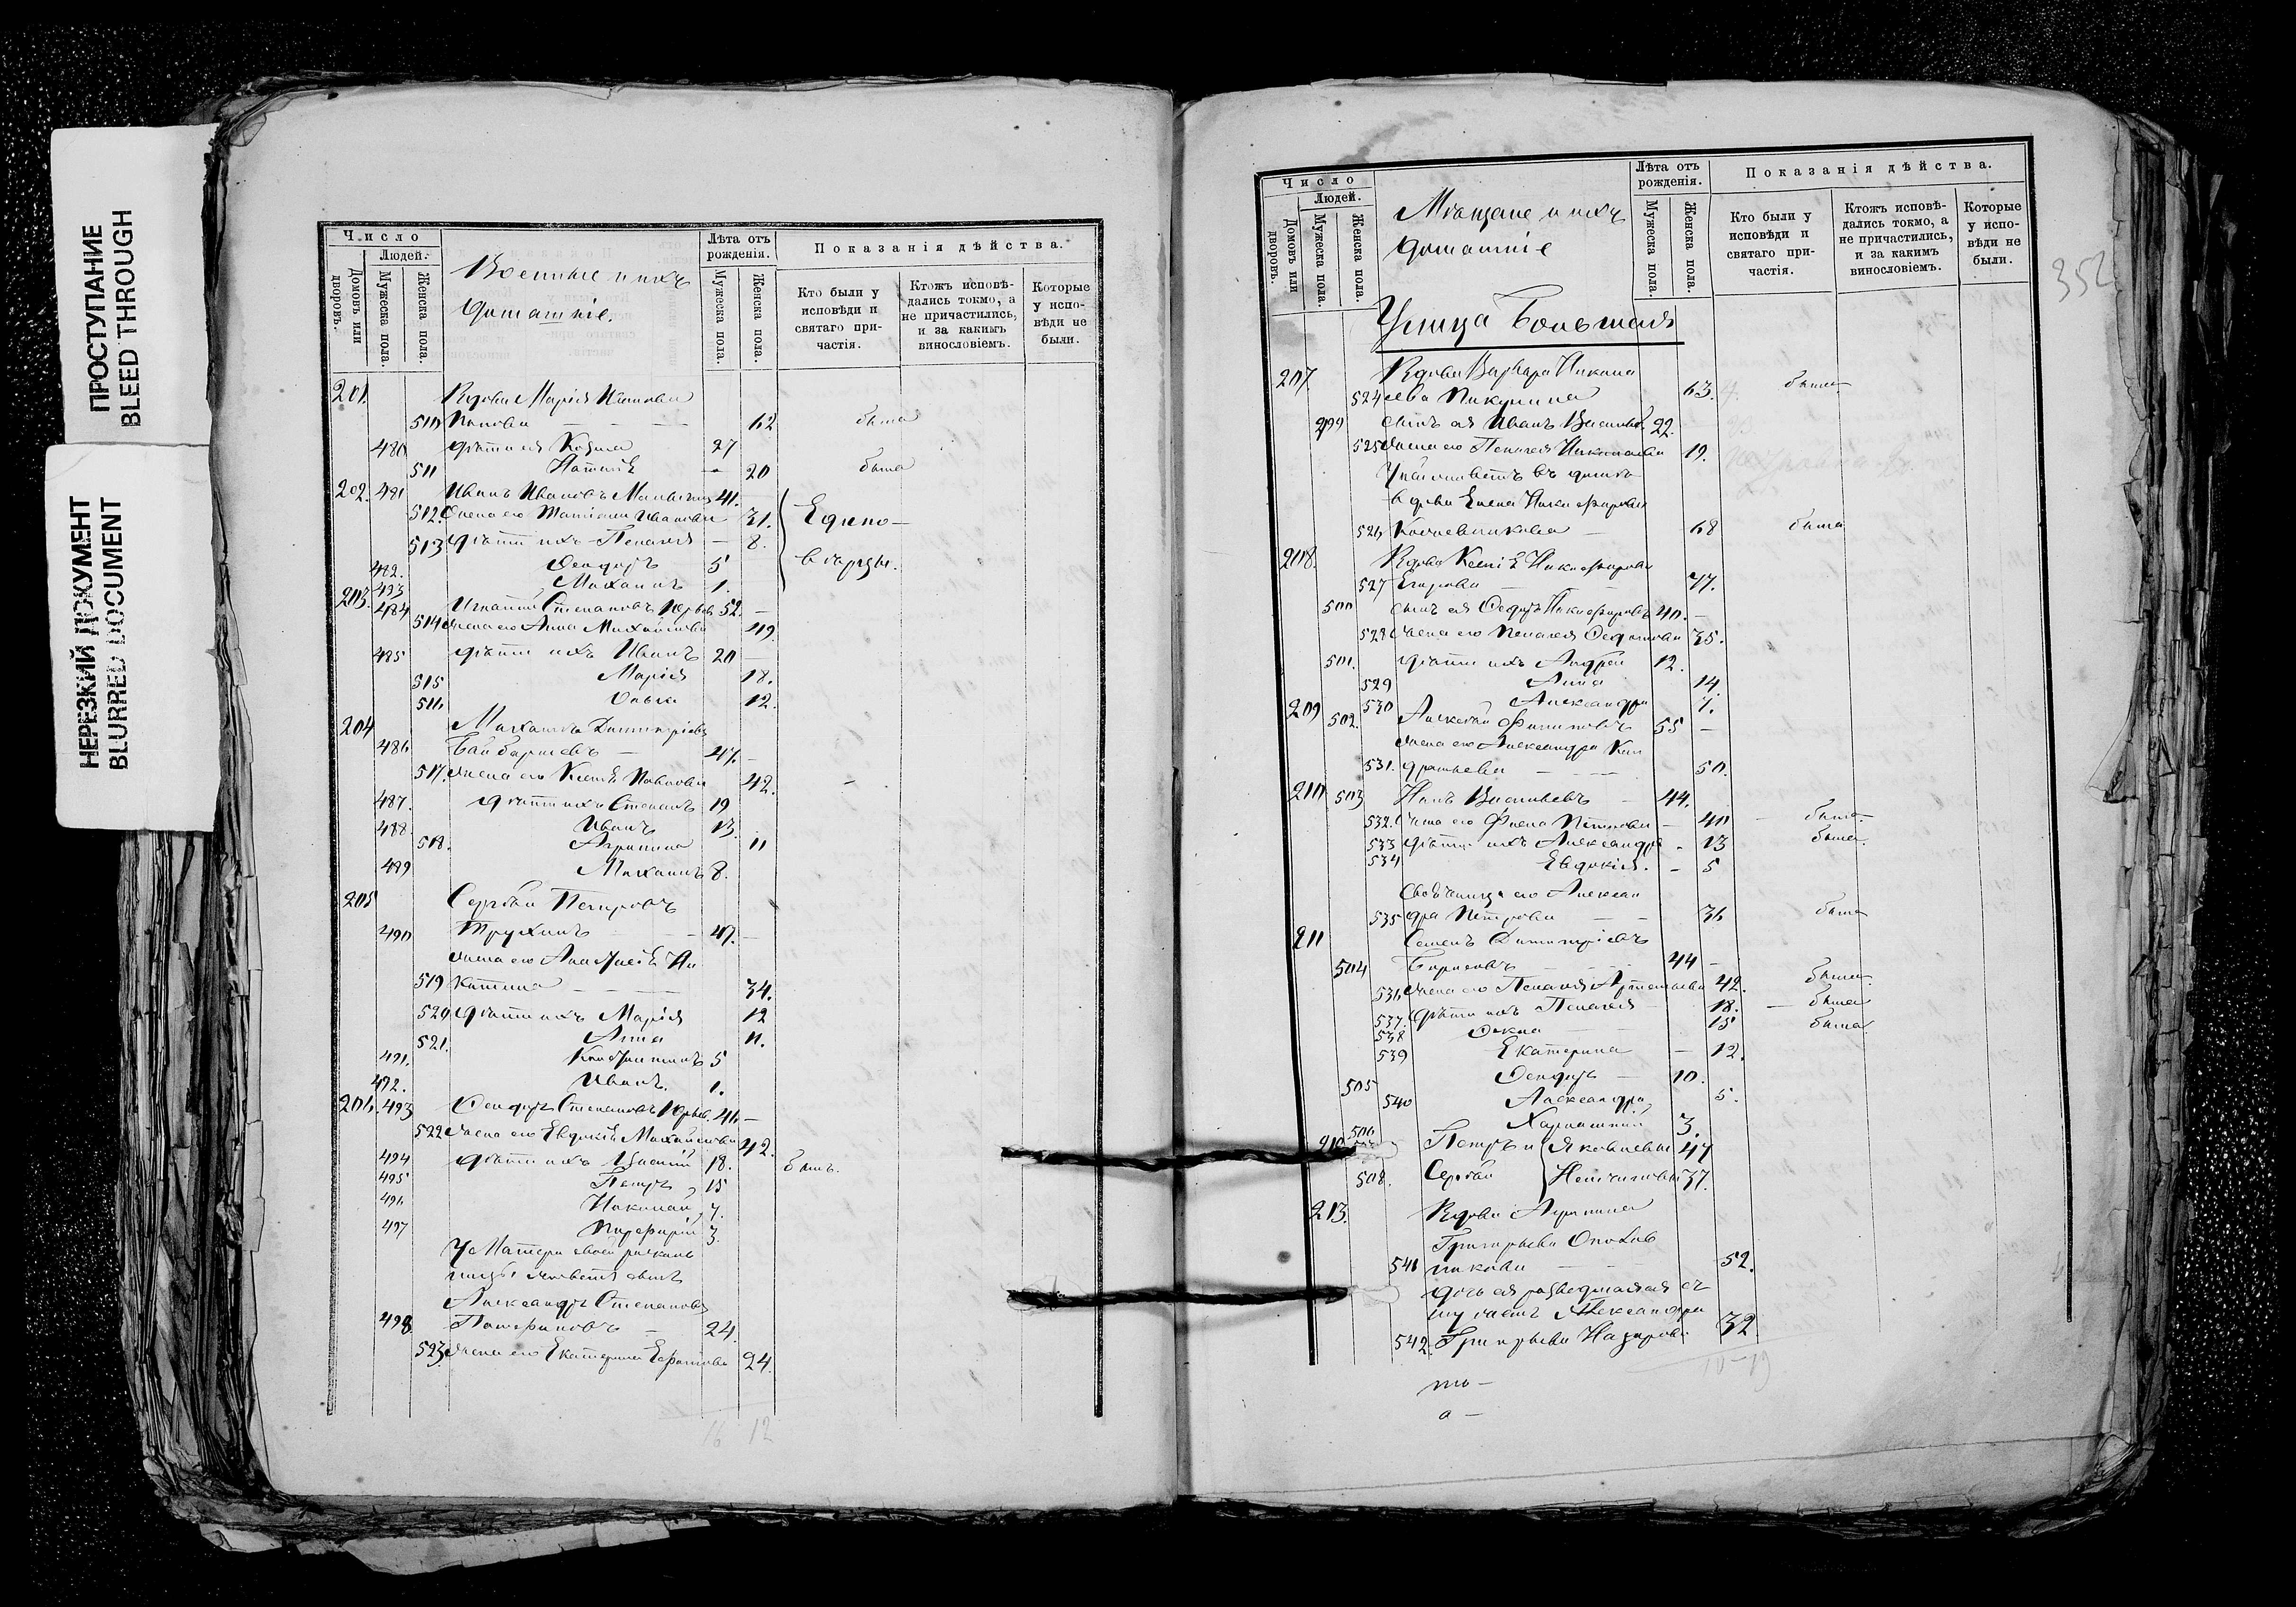 ПРОСТУПАНИЕ
BLEED THROUGH
НЕРЕЗКИЙ ДОКУМЕНТ
BLURRED DOCUMENT
Число
Людей.
Домовъ или дворовъ.
Мужеска пола.
Женска пола.
Военные и ихъ
домашніе.
Лѣта отъ рожденія.
Мужеска пола.
Женска пола.
Показанія дѣйства.
Кто были у исповѣди и святаго причастія.
Ктожъ исповѣдались токмо, а не причастились, и за какимъ винословіемъ.
Которые у исповѣди не были.
201. Вдова Марія Иванова
510 Попова 62 была
480 дѣти ея Козьма 27
511 Наталія 20 была
202. 481 Иванъ Ивановъ 41.
512. жена его Татіана Иванова 31. Едино-
513 дѣти ихъ Пелагея 8.
482. Ѳеодоръ 5 вѣрцы.
483 Михаилъ 1.
203. 484 Игнатій Степановъ Юрьевъ 52.
514 жена его Анна Михайлова 49
485 дѣти ихъ Иванъ 20
515 Марія 18.
516 Ольга 12.
204 Михаилъ Димитріевъ
486 47.
517. жена его Ксенія Павлова 42.
487. дѣти ихъ Степанъ 19
488. Иванъ 13.
518. Агрипина 11
489 Михаилъ 8.
205 Сергѣй Петровъ
490 Трухинъ 47.
жена его Анастасія Ни
519 китина 34.
520 дѣти ихъ Марія 12
521. Анна 11.
491. Константинъ 5
492. Иванъ. 1.
206. 493 Ѳеодоръ Степановъ Юрьев. 46
522 жена его Евдокія Михайлова 42.
494 дѣти ихъ Василій 18. былъ.
495 Петръ 15
496 Николай 7.
497 Порфирій 3.
У матери своей расколь
ницы живетъ сынъ
Александръ Степановъ
498. 24.
523. жена его Екатерина 24.
16 12
Число
Людей.
Домовъ или дворовъ.
Мужеска пола.
Женска пола.
Мѣщане и ихъ
домашніе
Лѣта отъ рожденія.
Мужеска пола.
Женска пола.
Показанія дѣйства.
Кто были у исповѣди и святаго причастія.
Ктожъ исповѣдались токмо, а не причастились, и за какимъ винословіемъ.
Которые у исповѣди не были.
352
Улица Большая
207. Вдова Варвара Никола
524 ева Пикулина 63. была
499 сынъ ея Иванъ Васильев. 22.
525 жена его Пелагея Николаева 19.
У ней живетъ въ домѣ
вдова Елена Никифорова
526 Кожевникова 68 была
208. Вдова Ксенія Никифорова
527 Егорова 77.
500 сынъ ея Ѳедоръ Никифоровъ 40.
528 жена его Пелагея 35.
501. дѣти ихъ Андрей 12.
529 Анна 14.
530 Александра 7.
209 502. Алексѣй Филиповъ 55
жена его Александра Кон
531. дратьева 50.
210 503 Васильевъ 44.
532. жена его Петрова 40 была.
533 дѣти ихъ Александра 13 была.
534 Евдокія. 5
его Алексан
535 дра Петрова 36 была
211 Семенъ Димитріевъ
504 Борисовъ 44
536 жена его Пелагея Артемьева 42. была.
537. дѣти ихъ Пелагея 18. была
538 Ѳекла 15 была.
539 Екатерина 12.
505 Ѳеодоръ 10.
540 Александра, 5.
506 Харлампій 3.
212 Петръ и Яковлевы 47
508. Сергѣй 37.
213. Вдова Агрипина
Григорьева
541 никова 52.
дочь ея разведшаяся съ
мужемъ Александра
542. Григорьева Назарова 32
10-19